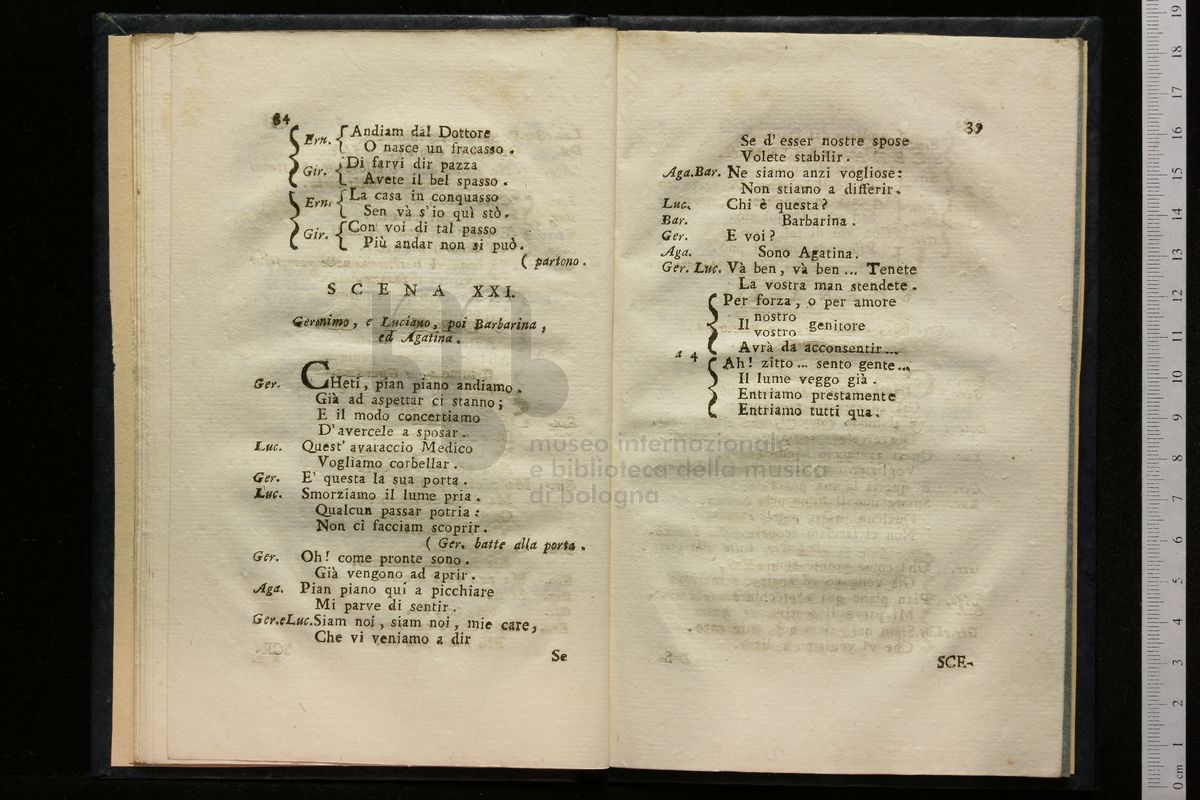 84
Ern. Andiam dal Dottore
O nasce un fracasso.
Gir. Di farvi dir pazza
Avete il bel spasso.
Ern. La casa in conquasso
Sen và s'io quì stò.
Gir. Con voi di tal passo
Più andar non si può.
( partono.
SCENA XXI.
Geronimo, e Luciano, poi Barbarina,
ed Agatina.
Ger. CHeti, pian piano andiamo.
Già ad aspettar ci stanno;
E il modo concertiamo
D'avercele a sposar.
Luc. Quest' avaraccio Medico
Vogliamo corbellar.
Ger. E' questa la sua porta.
Luc. Smorziamo il lume pria.
Qualcun passar potria:
Non ci facciam scoprir.
( Ger. batte alla porta.
Ger. Oh! come pronte sono.
Già vengono ad aprir.
Aga. Pian piano quì a picchiare
Mi parve di sentir.
Ger.eLuc. Siam noi, siam noi, mie care,
Che vi veniamo a dir
Se
35
Se d' esser nostre spose
Volete stabilir.
Aga.Bar. Ne siamo anzi vogliose:
Non stiamo a differir.
Luc. Chi è questa?
Bar. Barbarina.
Ger. E voi?
Aga. Sono Agatina.
Ger. Luc. Và ben, và ben... Tenete
La vostra man stendete.
a 4
Per forza, o per amore
Il nostro
vostro genitore
Avrà da acconsentir...
Ah! zitto... sento gente...
Il lume veggo già.
Entriamo prestamente
Entriamo tutti qua.
SCE-
museo internazionale
e biblioteca della musica
di bologna
0 cm 1 2 3 4 5 6 7 8 9 10 11 12 13 14 15 16 17 18 19